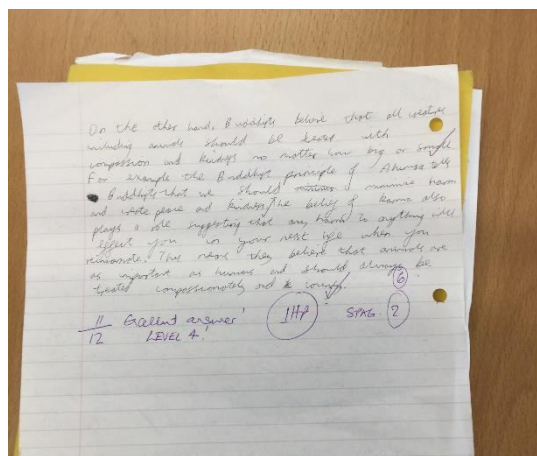 On the other hand, Buddhists believe that all creatures
including animals should be treated with
compassion and kindness no matter how big or small
For example the Buddhist principle of Ahimsa tells
Buddhists that we should minimise harm
and create peace and kindness. The belief of Karma also
plays a role suggesting that any harm to anything will
effect you in your next life when you
reincarnate. This means they believe that animals are
as important as humans and should always be
treated compassionately and
6
11/12 Excellent answer!
LEVEL 4!
1HP
SPAG 2